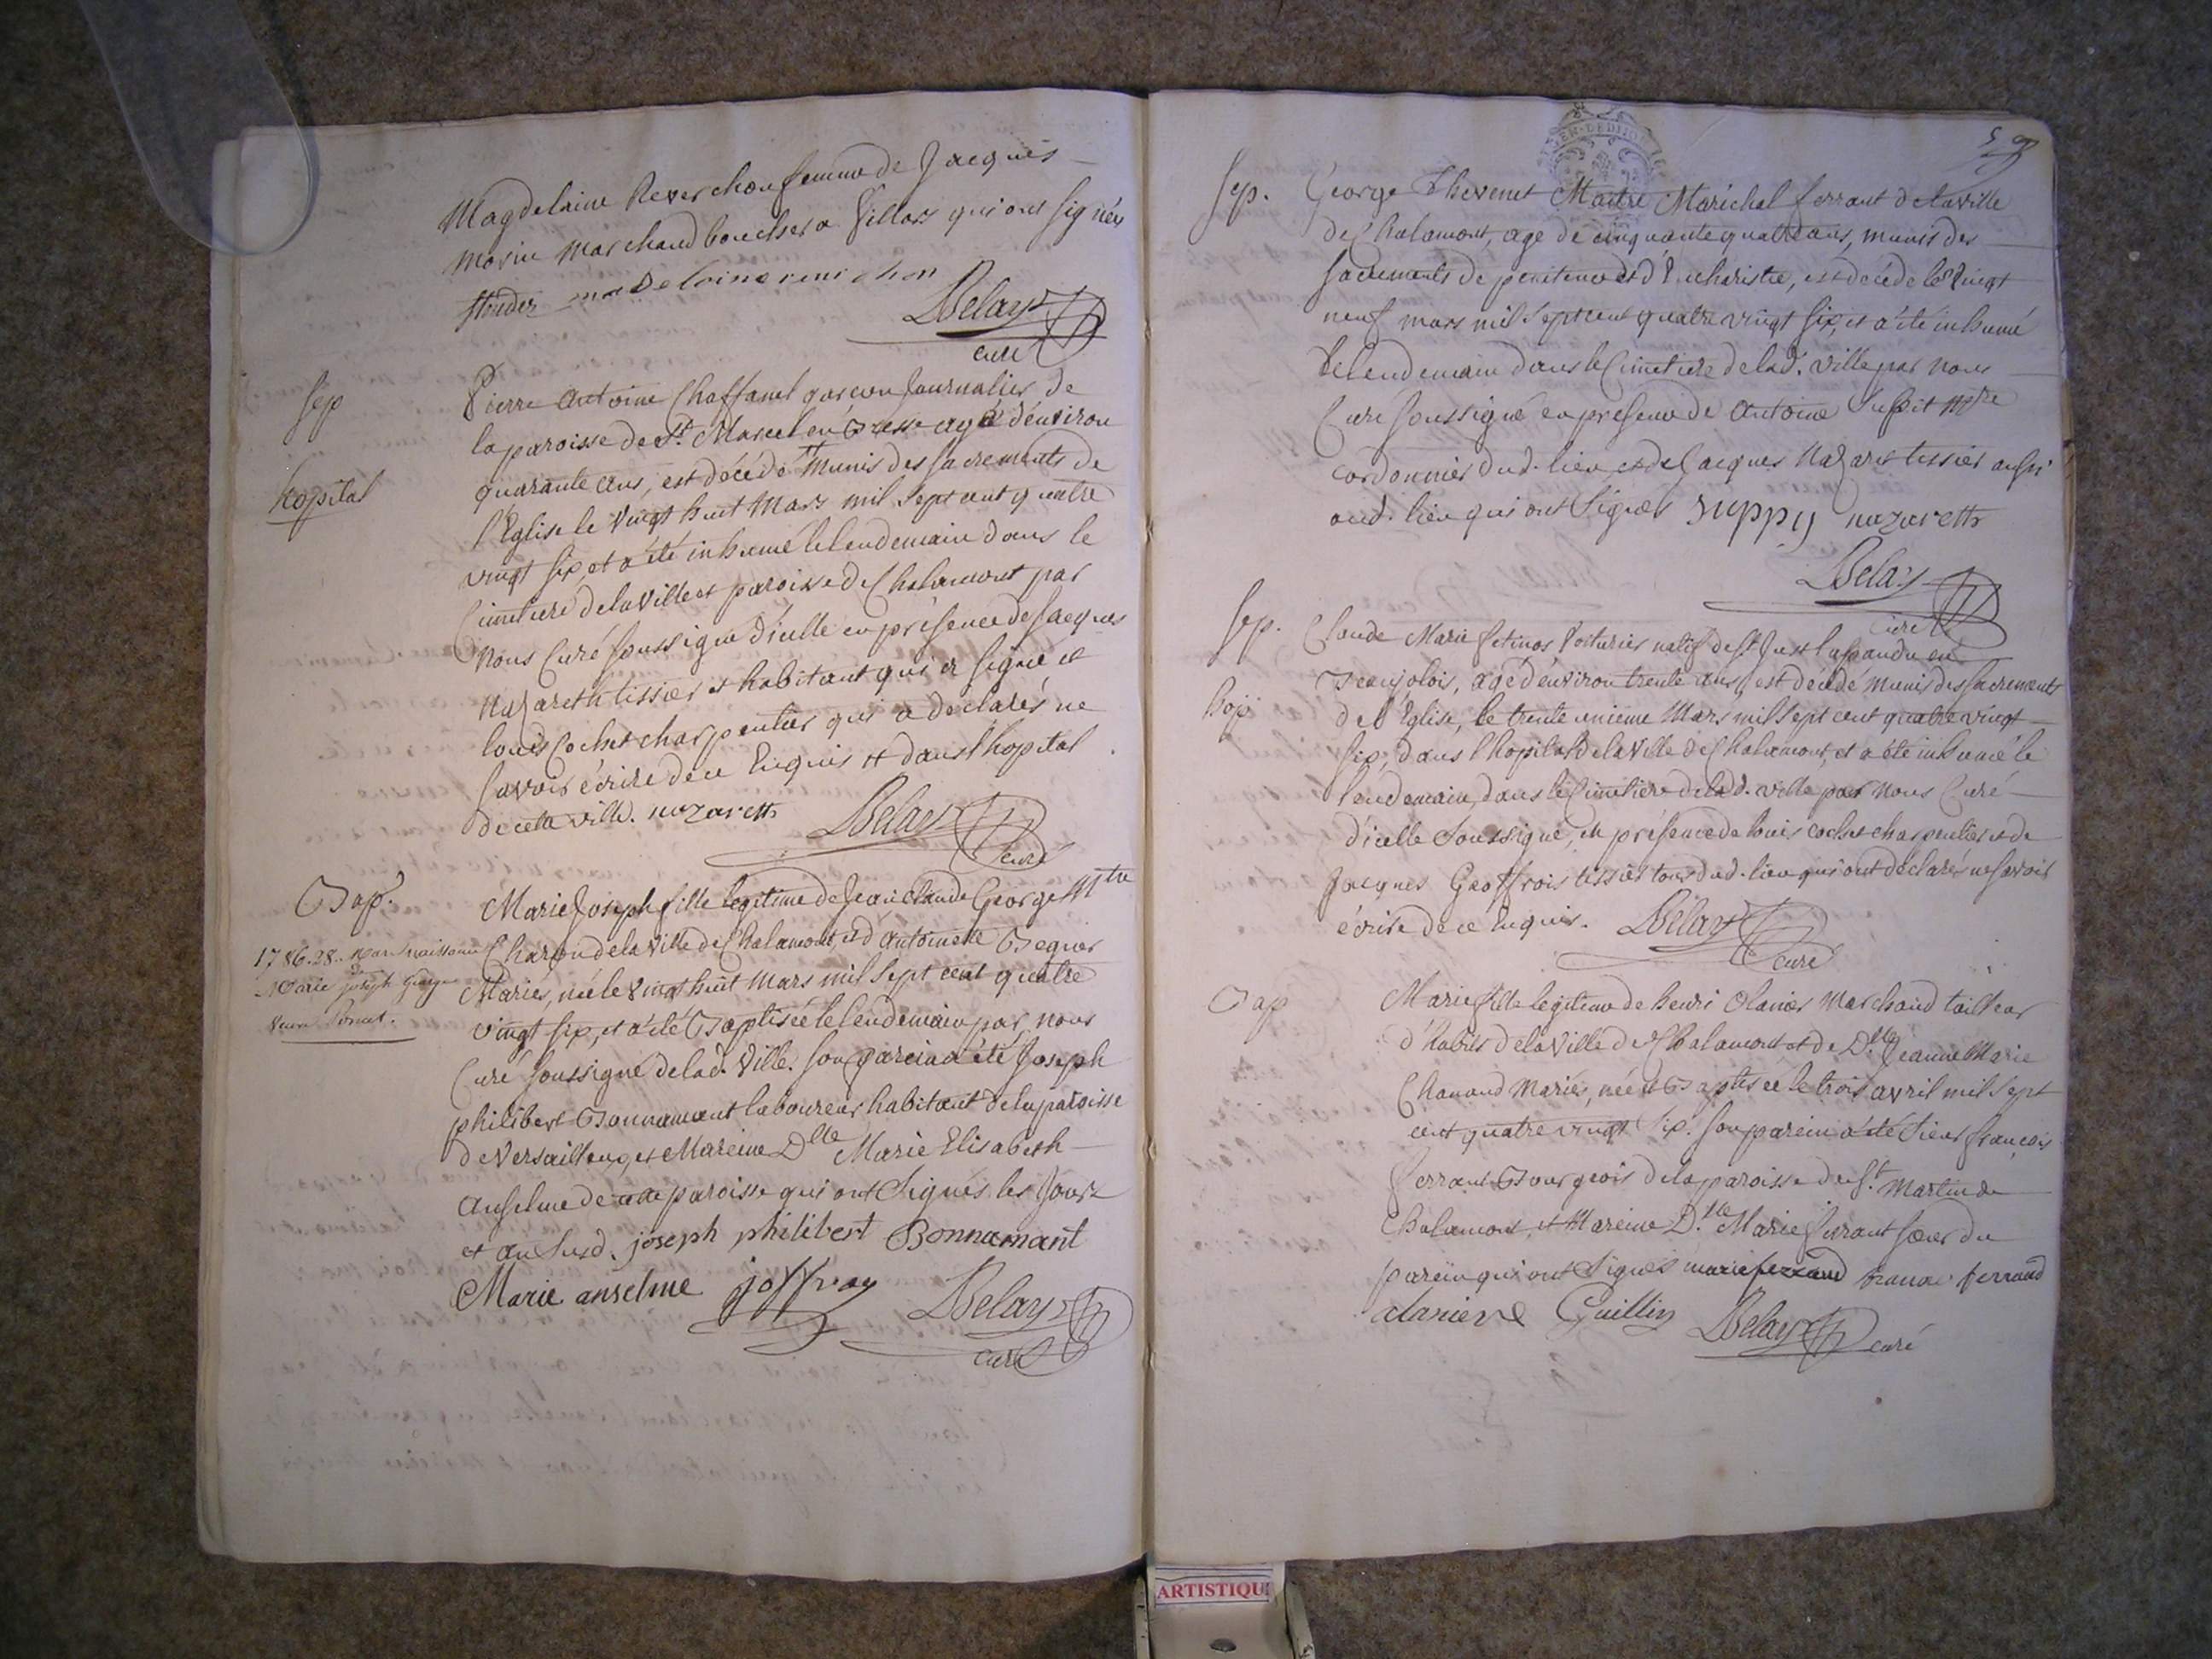 Magdelaine Reverchon femme de Jacques
morin marchand boucher a Villars qui ont signés
madelaine reverchon
Belay
curé
Sep
hopital
Pierre Antoine Chaffanel garcon Journalier de
la paroisse de St. Marcel en Bresse agé d'environ
quarante ans, est décédé munis des sacrements de
l'Eglise le vingt huit Mars mil sept cent quatre
vingt six, et a été inhumé le lendemain dans le
Cimetiere de la ville et paroisse de Chalamont par
nous Curé soussigné d'icelle en présence de Jacques
Nazareth tissier et habitant qui a signé et
louis Cochet charpentier qui a déclarés ne
savoir écrire de ce Enquis dans l'hopital
de cette ville. nazareth
Belay
curé
Bap.
1786. 28. mars naissance
de
Marie joseph George
Marie Joseph fille legitime de Jean Claude George Mtre
Charon de la ville de Chalamont, et d'Antoinette
Mariés, née le vingt huit mars mil sept cent quatre
vingt six, et a été Baptisée le lendemain par nous
Curé soussigné de lad. Ville. son parein a été Joseph
philibert Bonnamant laboureur habitant de la paroisse
de Versailleux, et Mareine Dlle Marie Elisabeth
Anselme de cette paroisse qui ont signés les Jour
et an susd. joseph philibert Bonnamant
Marie anselme joffray Belay
curé
59
Sep.
George Thevenet Maitre Maréchal ferrant de la ville
de Chalamont, age de cinquante quatre ans, munis des
sacrements de penitence et d'Eucharistie, est décédé le vingt
neuf mars mil sept cent quatre vingt six, et a été inhumé
le lendemain dans le Cimetiere de lad. ville par nous
Curé soussigné en presence de Antoine Mtre
cordonnier dud. lieu, et de Jacques Nazaret tissier aussi
aud. lieu qui ont signés suppy nazareth
Belay
curé
Sep.
hop
Claude Marie Voiturier natif de St. Just en
Beaujolois, agé d'environ trente ans, est décédé munis des sacrements
de l'Eglise, le trente unieme Mars mil sept cent quatre vingt
six, dans l'hopital de la ville de Chalamont, et a été inhumé le
lendemain, dans le Cimetiere de lad. ville par nous Curé
d'icelle soussigné, en présence de louis cochet charpentier et de
Jacques Geoffrois tissier tous dud. lieu qui ont déclarés ne savoir
écrire de ce Enquis. Belay
curé
Bap
Marie fille legitime de henri Marchand tailleur
d'habits de la ville de Chalamont et de Dlle Jeanne Marie
Mariés, née et Baptisée le trois avril mil sept
cent quatre vingt six. son parein a été Sieur françois
ferrant Bourgeois de la paroisse de St. Martin de
Chalamont, et Mareine Dlle Marie ferrant sœur du
parein qui ont signés marie ferrand ferrand
Guillin Belay curé
ARTISTIQU